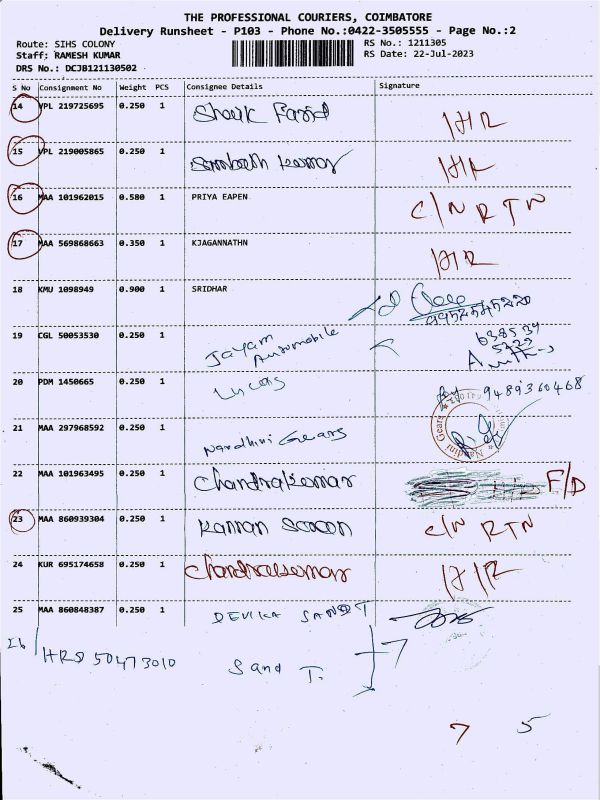 THE PROFESSIONAL COURIERS, COIMBATORE
Delivery Runsheet - P103 - Phone No.:0422-3505555 - Page No.:2
Route: SIHS COLONY RS No.: 1211305
Staff: RAMESH KUMAR RS Date: 22-Jul-2023
DRS No.: DCJB121130502
S No Consignment No Weight PCS Consignee Details Signature
14 VPL 219725695 0.250 1 Shaik Farid
15 VPL 219005865 0.250 1 Sambath Kumar
16 MAA 101962015 0.580 1 PRIYA EAPEN C/N RTN
17 MAA 569868663 0.350 1 KJAGANNATHN
18 KMU 1098949 0.900 1 SRIDHAR
19 CGL 50053530 0.250 1 Jayam Automobile
20 PDM 1450665 0.250 1 Lucas 9489360468
21 MAA 297968592 0.250 1 Nandhini Gears
22 MAA 101963495 0.250 1 Chandrakumar F/D
23 MAA 860939304 0.250 1 C/N RTN
24 KUR 695174658 0.250 1 Chandrakumar
25 MAA 860848387 0.250 1 DEVIKA
26 HRD 50473010 Sand T. 7
7 5